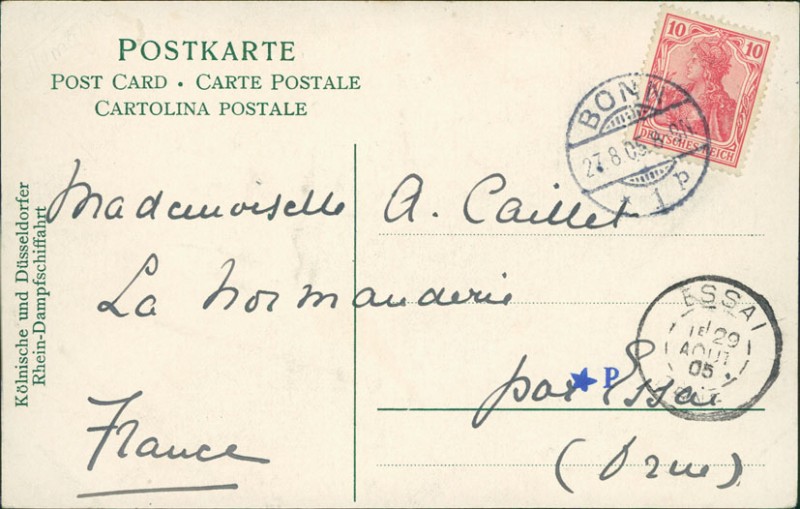 POSTKARTE
POST CARD • CARTE POSTALE
CARTOLINA POSTALE
10 10
DEUTSCHES REICH
BONN
27.8.05
* 1 P
Kölnische und Düsseldorfer
Rhein-Dampfschiffahrt
Mademoiselle A. Caillet
La Normanderie
par Essai
★ P
(Orne)
France
ESSAI
1E 29
AOUT
05